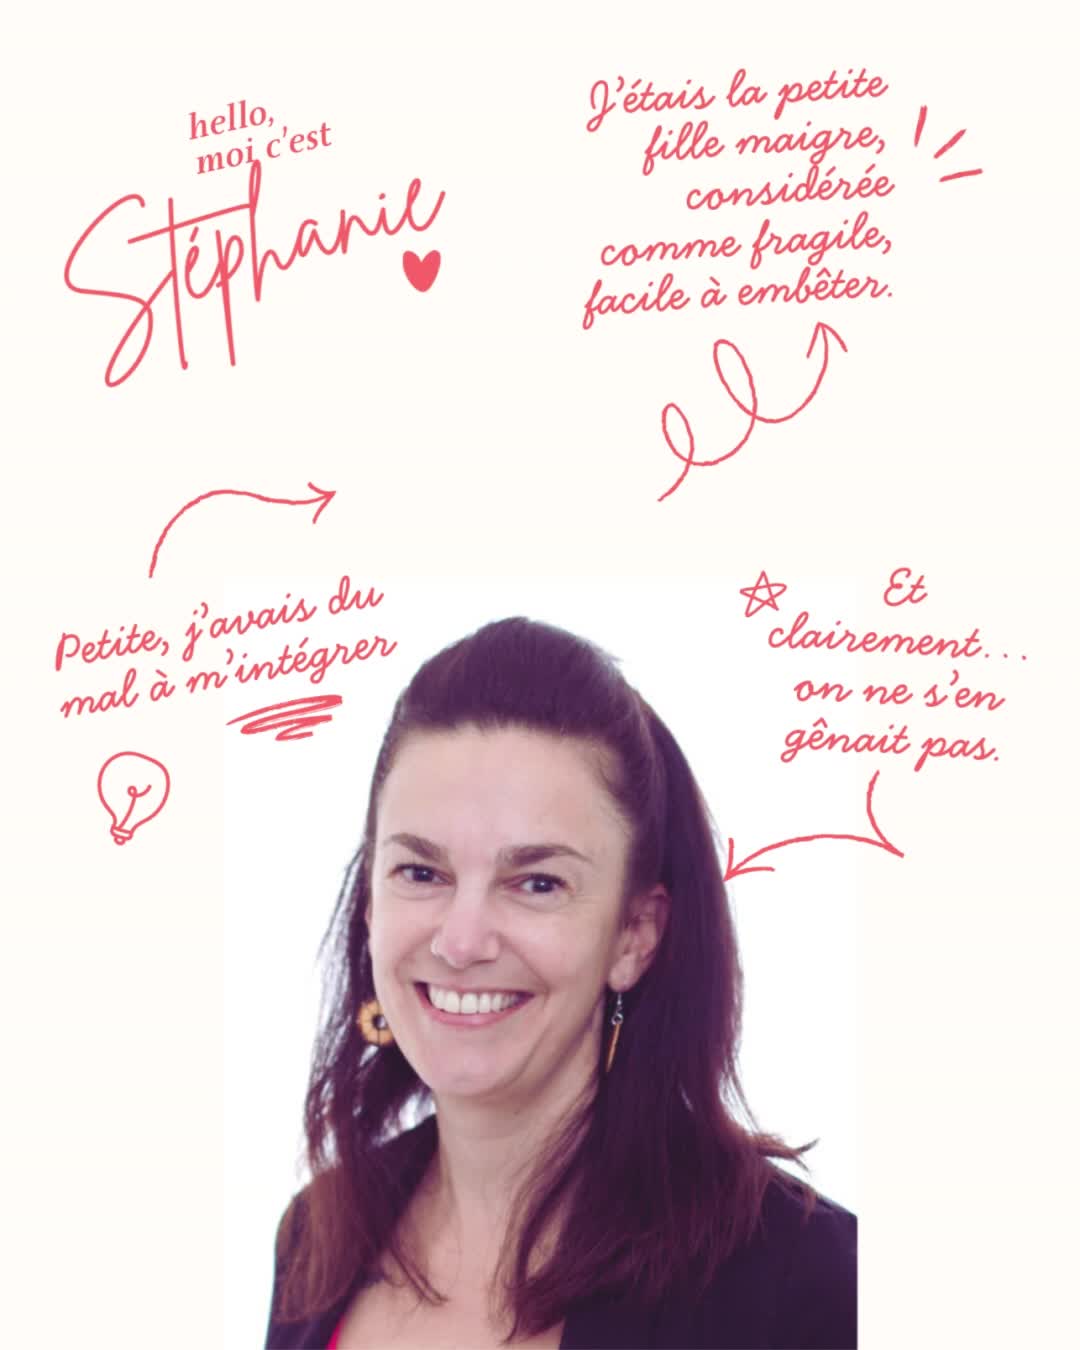 hello,
moi c'est
Stéphanie
J'étais la petite
fille maigre,
considérée
comme fragile,
facile à embêter.
Petite, j'avais du
mal à m'intégrer
Et
clairement...
on ne s'en
gênait pas.